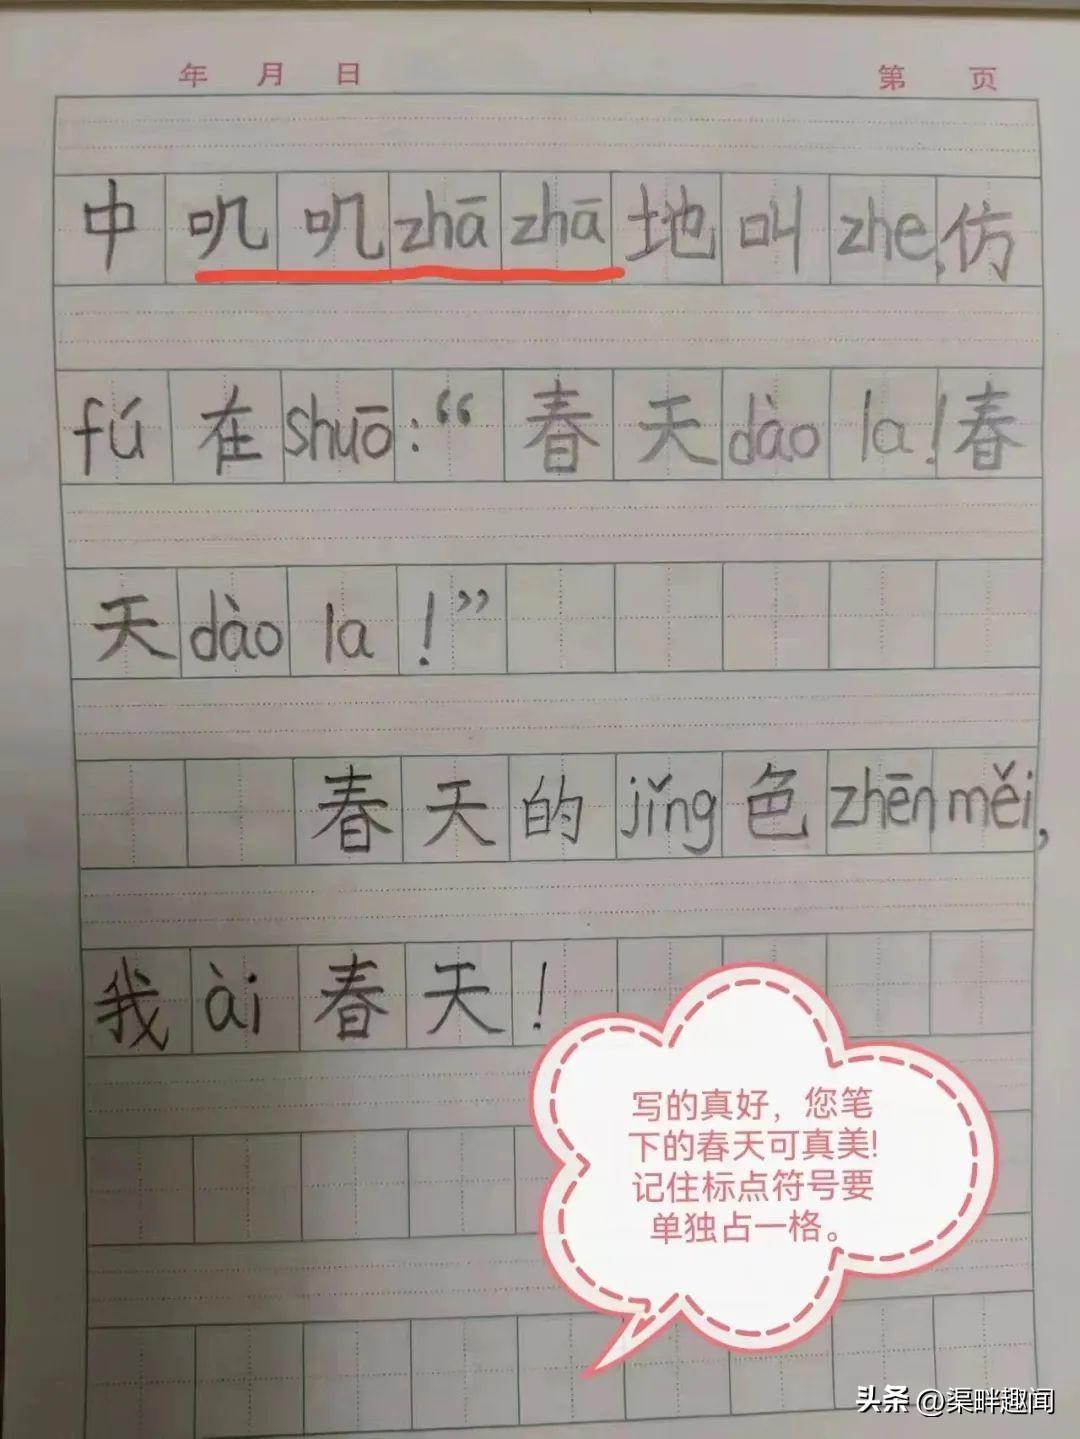 年 月 日 第 页
中叽叽zhā zhā地叫zhe,仿
fú在shuō:“春天dào la!春
天dào la!”
春天的jǐng色zhēn měi,
我ài春天!
写的真好，您笔
下的春天可真美!
记住标点符号要
单独占一格。
头条 @渠畔趣闻